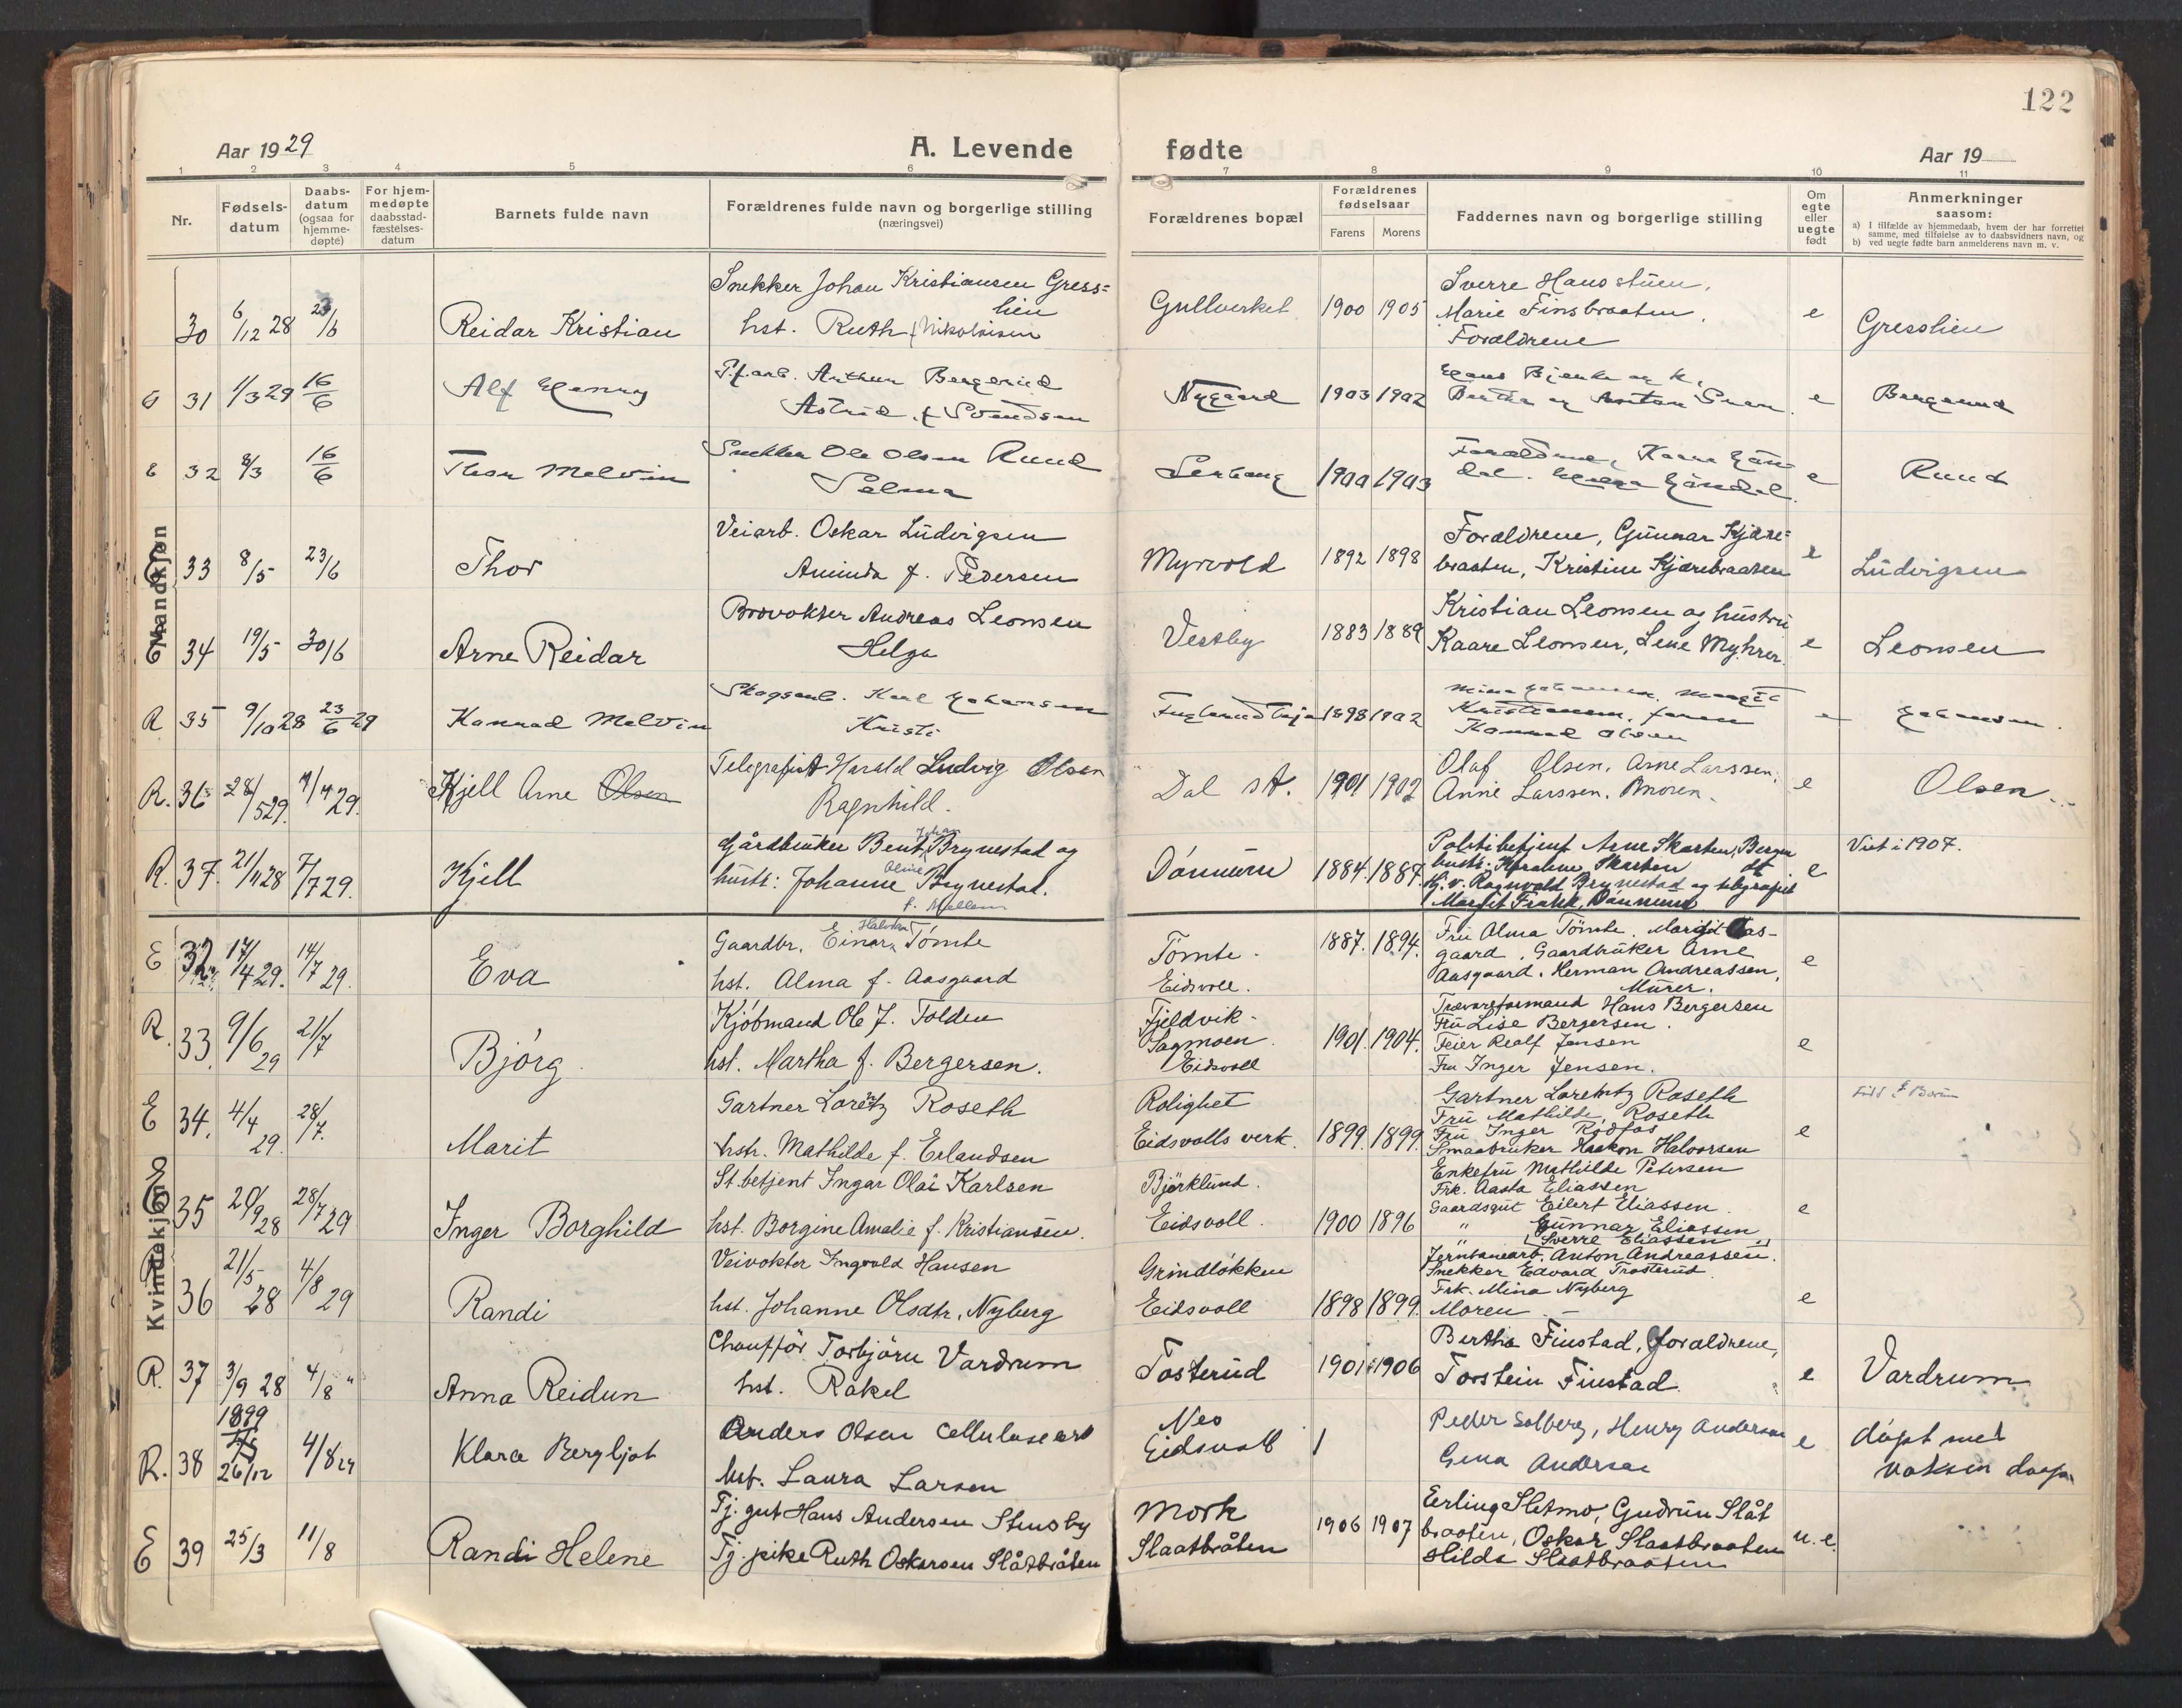 122
Aar 1929
A. Levende
fødte
Aar 19
1 2 3 4 5 6 7 8 9 10 11
Nr.
Fødsels-
datum
Daabs-
datum
(ogsaa for
hjemme-
døpte)
For hjem-
medøpte
daabsstad-
fæstelses-
datum
Barnets fulde navn
Forældrenes fulde navn og borgerlige stilling
(næringsvei)
Forældrenes bopæl
Forældrenes
fødselsaar
Farens Morens
Faddernes navn og borgerlige stilling
Om
egte
eller
uegte
født
Anmerkninger
saasom:
a) I tilfælde av hjemmedaab, hvem der har forrettet
samme, med tilføielse av to daabsvidners navn, og
b) ved uegte fødte barn anmelderens navn m. v.
Mandkjøn
30 6/12 28 23/6
Reidar Kristian
Snekker Johan Kristiansen Gress=
lien
hst. Ruth f Nikolaisen
Gullverket 1900 1905
Sverre Hansstuen,
Marie Finsbraaten,
Forældrene
e
Gresslien
31 1/3 29 16/6
Alf Henry
Arthur Bergerud
Astrid f Svendsen
Nygaard 1903 1902
e
Bergerud
E 32 8/3 16/6
Thor Melvin
Snekker Ole Olsen Ruud
Selma
1900 1903
Forældrene, Kaare
e
Ruud
33 8/5 23/6
Thor
Veiarb. Oskar Ludvigsen
Aminda f. Pedersen
Myrvold 1892 1898
Forældrene, Gunnar Kjære=
braaten, Kristine Kjærebraaten
e
Ludvigsen
34 19/5 30/6
Arne Reidar
Brovokter Andreas Leonsen
Helga
Vestby 1883 1889
Kristian Leonsen og hustru
Kaare Leonsen, Lene Myhrer.
e
Leonsen
R 35 9/10 28 23/6 29
Konrad Melvin
Skogsarb. Karl Johansen
Kristi
1898 1902
Kristiansen, faren
Konrad Olsen
e
Johansen.
R. 36 28/5 29. 7/7 29.
Kjell Arne Olsen
Telegrafist Harald Ludvig Olsen
Ragnhild.
Dal st. 1901 1902
Olaf Olsen, Arne Larssen,
Anne Larssen, Moren.
e
Olsen.
R. 37. 21/11 28 7/7 29.
Kjell
Gårdbruker Bent Johan Brynestad og
hustr: Johanne Oline Brynestad.
f. Mellem
Dønnum 1884. 1884.
Politibetjent Arne Skarten, Bergen
hustr: Skarten
Ragnvald Brynestad og telegrafist
Margit Frakk, Dønnum
e
Viet i 1907.
Kvindekjøn
E 32 17/4 29. 14/7 29.
Eva
Gaardbr. Einar Halvdan Tømte
hst. Alma f. Aasgaard
Tømte.
Eidsvoll.
1887. 1894.
Fru Alma Tømte. Margit Aas-
gaard, Gaardbruker Arne
Aasgaard. Herman Andreassen,
Murer.
e
R. 33. 9/6 29 21/7
Bjørg
Kjøbmand Ole J. Tolden
hst. Martha f. Bergersen.
Fjeldvik-
Sagmoen.
Eidsvoll
1901. 1904.
Trævareformand Hans Bergersen
Fru Lise Bergersen.
Feier Rolf Jensen
Fru Inger Jensen.
e
E 34. 4/4 29. 28/7.
Marit
Gartner Lorentz Roseth
hstr. Mathilde f. Erlandsen
Rolighet
Eidsvolls verk. 1899. 1899.
Gartner Lorentz Roseth
Fru Mathilde Roseth
Fru Inger Rødfos
Smaabruker Haakon Halvorsen
Enkefru Mathilde Petersen
e
35 20/9 28 28/7 29
Inger Borghild
St. betjent Ingar Olai Karlsen
hst. Borgine Amalie f. Kristiansen.
Bjørklund.
Eidsvoll. 1900 1896
Frk. Aasta Eliassen
Gaardsgut Eilert Eliassen.
" Gunnar Eliassen
" Sverre Eliassen "
e
36 21/5 28 4/8 29
Randi
Veivokter Ingvald Hansen
hst. Johanne Olsdtr. Nyberg
Grindløkken
Eidsvoll 1898 1899.
Jernbanearb. Anton Andreassen.
Snekker Edvard Trosterud
Frk. Mina Nyberg
Moren. —
e
R. 37 3/9 28 4/8 "
Anna Reidun
Chauffør Torbjørn Vardrum
hst. Rakel
Tosterud 1901 1906
Bertha Finstad, forældrene,
Torstein Finstad.
e
Vardrum
R. 38 1899 26/12 4/8 29
Klara Bergljot
Anders Olsen Cellulosearb
hst. Laura Larsen
Nes
Eidsvoll
Peder Solberg, Henry Andersen
Gina Andersen
e
døpt med
voksen daap
E 39 25/3 11/8
Randi Helene
Tj. gut Hans Andersen Stensby
Tj. pike Ruth Oskarsen Slåtbråten
Mork
Slaatbråten 1906 1907
Erling Sletmo, Gudrun Slåt
braaten, Oskar Slaatbraaten
Hilda Slaatbraaten
u. e.